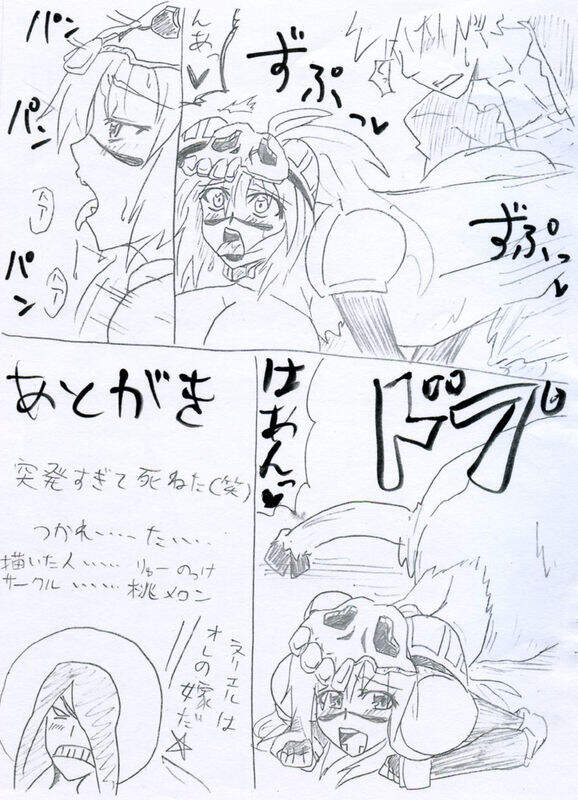 ずぷっ
んあ♥
ずぷっ
パン
パン
パン
ドプ
はあんっ♥
あとがき
突発すぎて死ねた(笑)
つかれ……た……
描いた人……りゅーのっけ
サークル……桃メロン
ネリエルは
オレの嫁だ☆